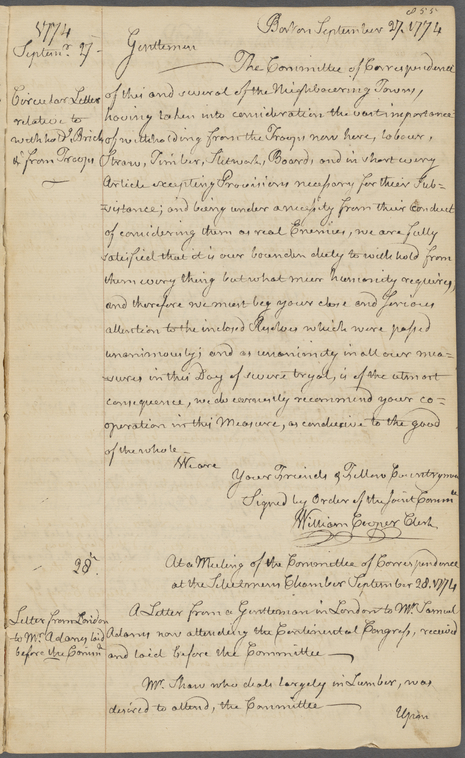 855
1774
Septemr. 27-
Boston September 27. 1774
Gentlemen
The Committee of Correspondence
Circular Letter
relative to
withholdg. Brick
&c. from Troops
of this and several of the Neighbouring Towns,
having taken into consideration the vast importance
of withholding from the Troops now here, labour,
Straw, Timber, Slitwork, Boards, and in short every
Article excepting Provisions necessary for their Sub-
-sistance; and being under a necessity from their conduct
of considering them as real Enemies, we are fully
satisfied that it is our bounden duty to withhold from
them every thing but what meer humanity requires;
and therefore we must beg your close and serious
attention to the inclosed Resolves which were passed
unanimously; and as unanimity in all our mea-
sures in this Day of severe tryal, is of the utmost
consequence, we do earnestly recommend your co-
operation in this Measure, as conducive to the good
of the whole-
We are
Your Friends & Fellow Countrymen
Signed by Order of the Joint Commee
William Cooper Clerk
28th.
At a Meeting of the Committee of Correspondence
at the Selectmens Chamber September 28. 1774
Letter from London
to Mr. Adams laid
before the Comme.
A Letter from a Gentleman in London to Mr. Samuel
Adams now attending the Continental Congress, received
and laid before the Committee —
Mr. Shaw who deals largely in Lumber, was
desired to attend, the Committee —
Upon